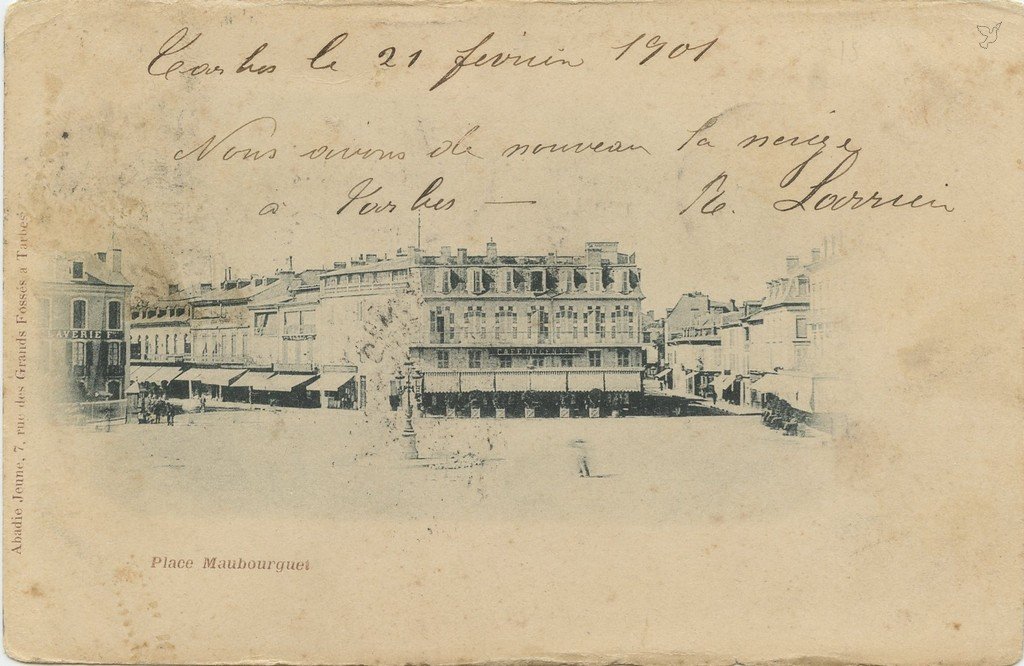 Tarbes le 21 février 1901
Nous avons de nouveau la neige
à Tarbes — R. Larrieu
AVERIE F
CAFE DU CENTRE
Place Maubourguet
Abadie Jeune, 7, rue des Grands Fossés à Tarbes